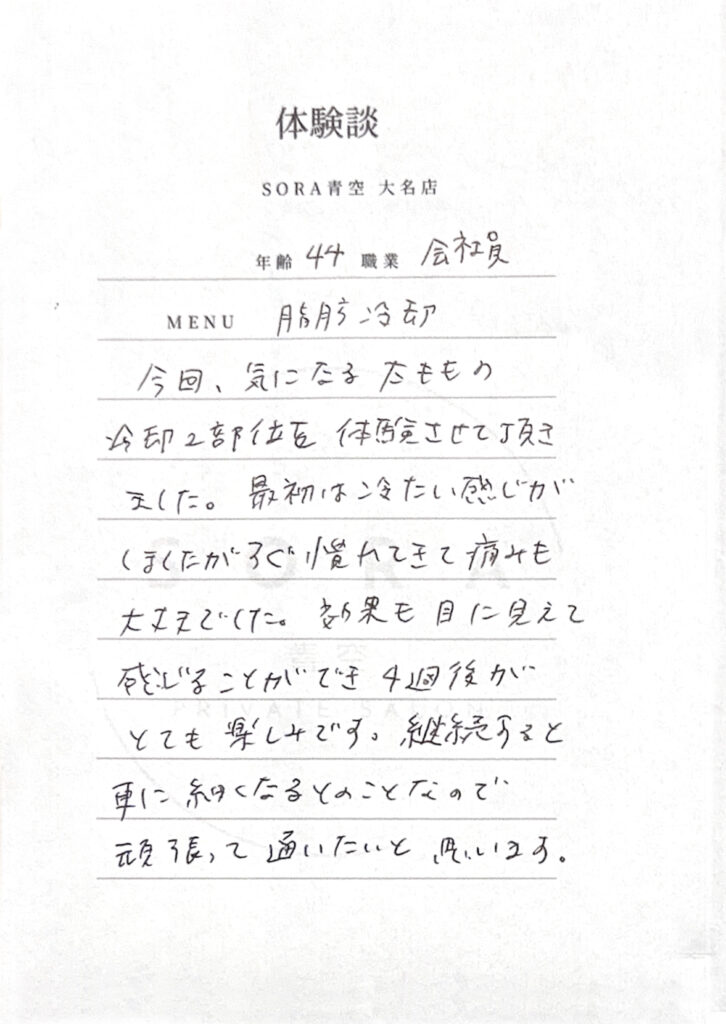 体験談
SORA青空 大名店
年齢 44 職業 会社員
MENU 脂肪冷却
今回、気になる太ももの
冷却2部位を体験させて頂き
ました。最初は冷たい感じが
しましたがすぐ慣れてきて痛みも
大丈夫でした。効果も目に見えて
感じることができ4週後が
とても楽しみです。継続すると
更に細くなるとのことなので
頑張って通いたいと思います。
SORA
青空
PRIVATE SALON